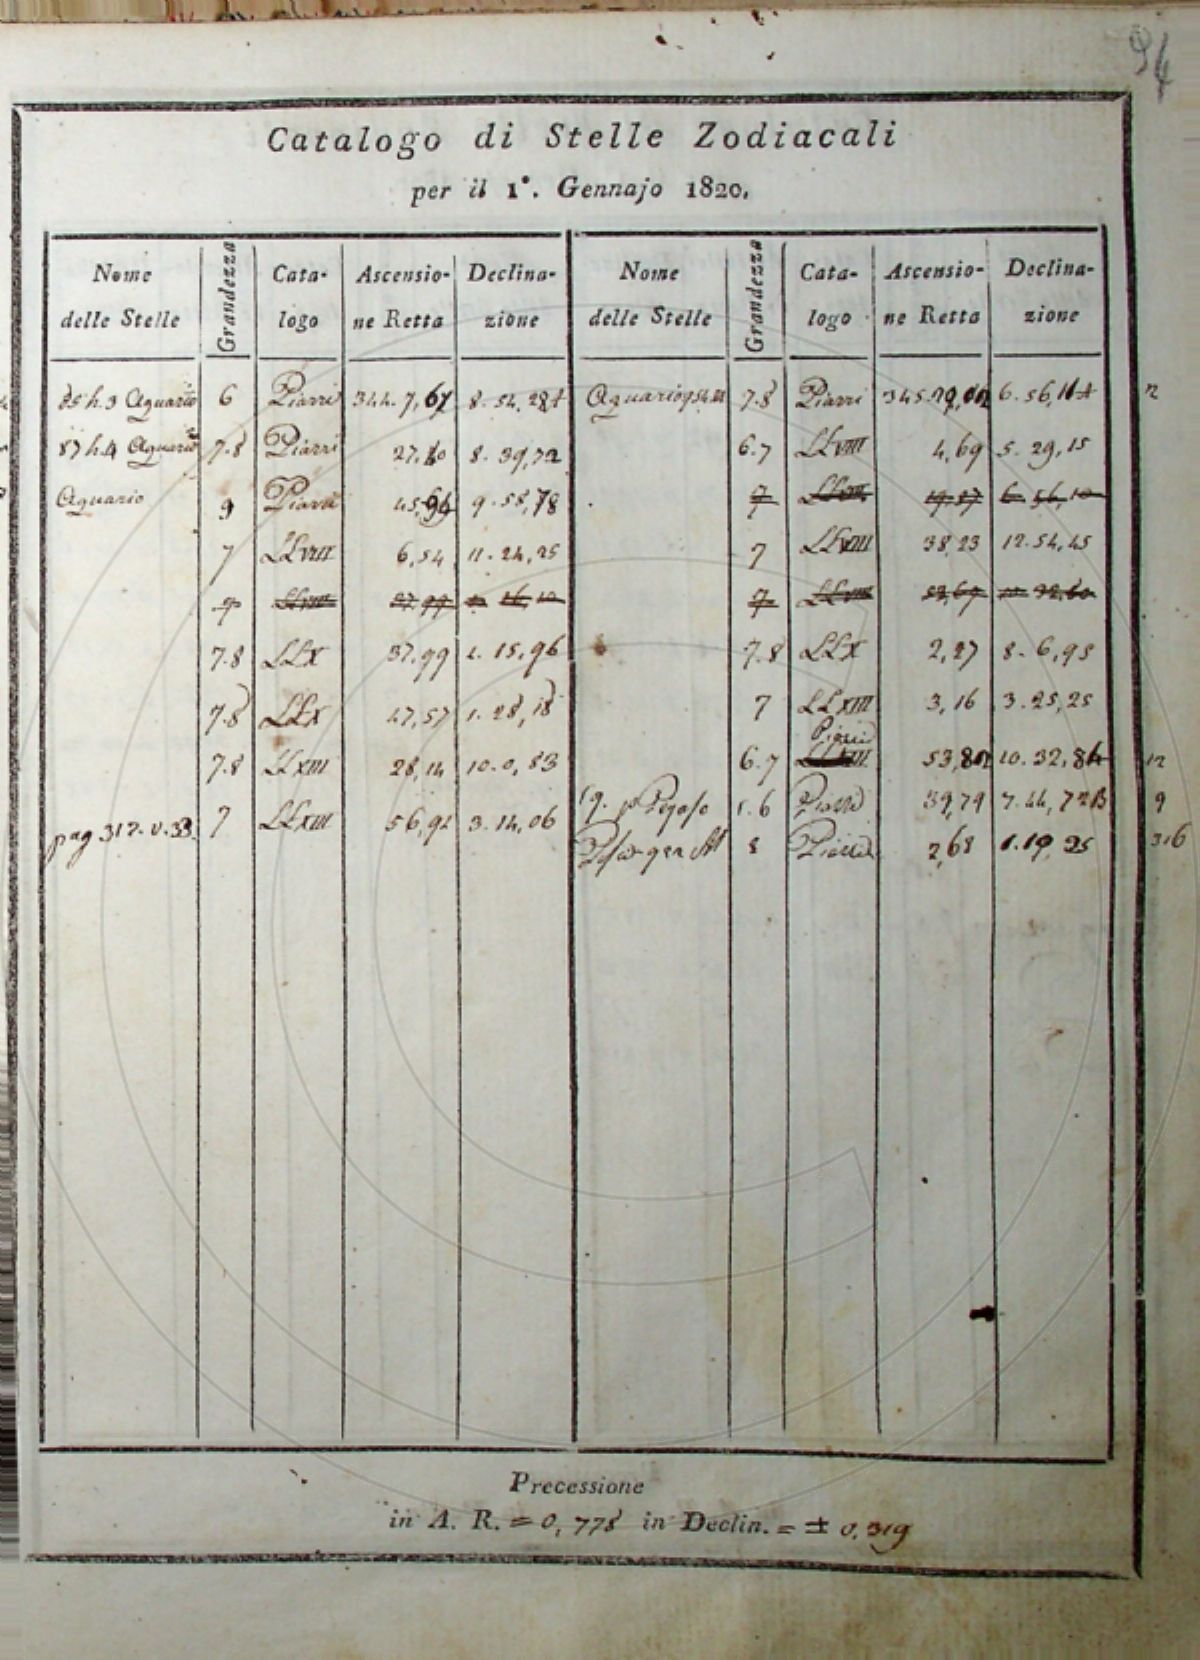 94
Catalogo di Stelle Zodiacali
per il 1°. Gennajo 1820.
Nome delle Stelle Grandezza Cata- logo Ascensio- ne Retta Declina- zione Nome delle Stelle Grandezza Cata- logo Ascensio- ne Retta Declina- zione
h.3 Aquario 6 Piazzi 344. 7,67 8. 54, 28 Aquario 7.8 Piazzi 345. 6. 56, 12
87 h.4 Aquario 7.8 Piazzi 27, 8. 39,72 6.7 LLVIII 4,69 5. 29,15
Aquario 9 Piazzi 45,96 9. 58,78 7 LLVIII 6. 56,10
7 LLVIII 6,54 11. 24,25 7 LLVIII 38,23 12. 54,45
7 LLVIII 7 LLVIII
7.8 LLX 37,99 15,96 7.8 LLX 2,27 8. 6,95
7.8 LLX 47,57 1. 28,18 7 LLXIII 3,16 3. 25,25
7.8 LLXIII 28,14 10. 0,83 6.7 Piazzi 53,80 10. 32,84 12
pag 317. v. 33. 7 LLXIII 56,92 3. 14,06 Pegaso 5.6 Piazzi 39,79 7. 44,72 B 9
8 Piazzi 2,68 1. 19, 25 316
Precessione
in A. R. = 0,778 in Declin. = ± 0,319